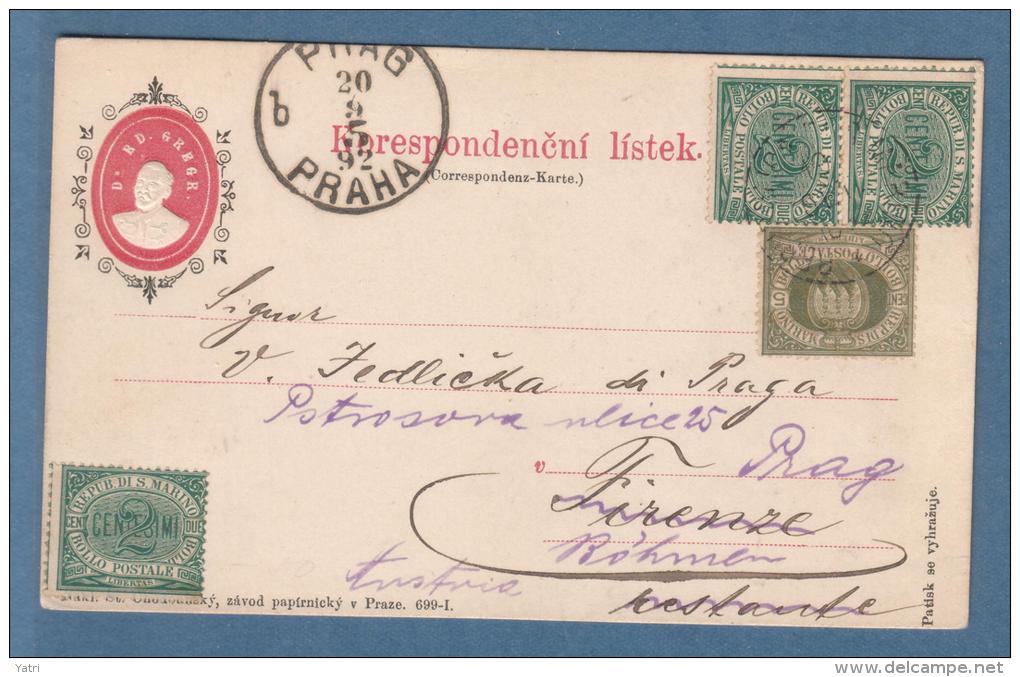 PRAG
20
9
5
92
b
PRAHA
Dr. ED. GREGR.
Korespondenční lístek.
(Correspondenz-Karte.)
REPUB. DI S. MARINO
CENTESIMI
2
BOLLO POSTALE
REPUB. DI S. MARINO
CENTESIMI
2
BOLLO POSTALE
CEN 5
REP. DI S. MARINO
BOLLO POSTALE
Signor
V. Jedlička di Praga
Pstrosova ulice 25
v Prag
Firenze
Böhmen
Austria
restante
REPUB. DI S. MARINO
CENT CENTESIMI DUE
2
BOLLO POSTALE
LIBERTAS
Nákl. St. závod papírnický v Praze. 699-I.
Patisk se vyhražuje.
Yatri
delcampe.net